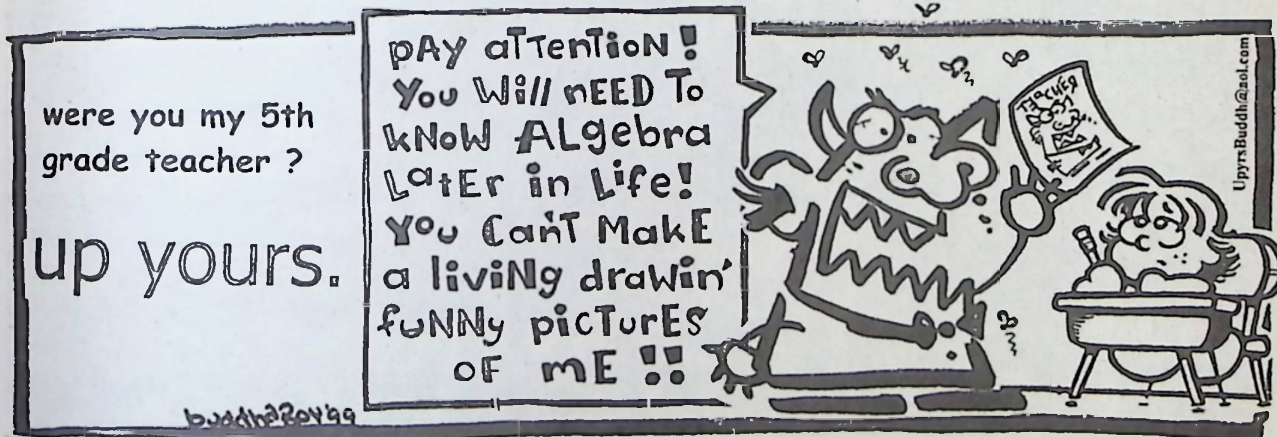 were you my 5th
grade teacher ?
up yours.
PAY aTTenTioN!
You Will nEED To
kNoW ALgebra
LatEr in Life!
You Can'T MakE
a liviNg drawin'
fuNNy picTurEs
OF mE !!
TEACHER
UpyrsBuddh@aol.com